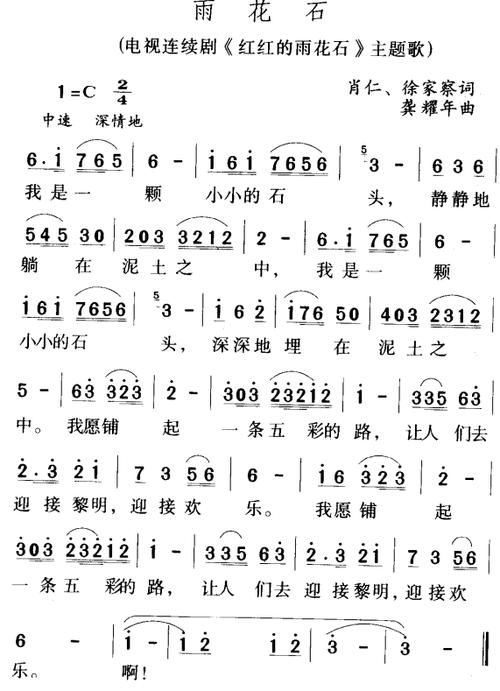 雨花石
(电视连续剧《红红的雨花石》主题歌)
1=C 2/4
肖仁、徐家察词
中速 深情地
龚耀年曲
6.i 765 | 6 - | i6i 7656 | 5 3 - | 636 |
我是一 颗 小小的石 头, 静静地
545 30 | 203 3212 | 2 - | 6.i 765 | 6 - |
躺 在 泥土之 中, 我是一 颗
i6i 7656 | 5 3 - | i62 | i76 50 | 403 2312 |
小小的石 头, 深深地埋 在 泥土之
5 - | 63 323 | 2 - | 303 23212 | i - | 335 63 |
中。 我愿铺 起 一条五 彩的路, 让人们去
2.3 2i | 7 3 56 | 6 - | i6 323 | 2 - |
迎接黎明,迎接欢 乐。 我愿铺 起
303 23212 | i - | 335 63 | 2.3 2i | 7 3 56 |
一条五 彩的路, 让人们去 迎接黎明,迎接欢
6 - | i - | i2 i2 | 3 - | 3 - ‖
乐。 啊!